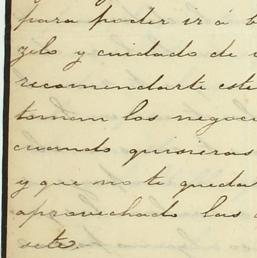 para poder ir á b
zelo y cuidado de
recomendarte este
toman los negoci
cuando quisieras
y que no te queda
aprovechado las